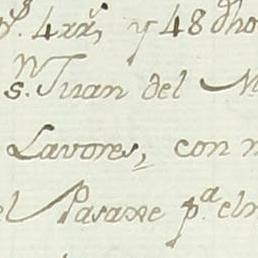 p.s 4xx.s y 48 dho
S.n Juan del M
Lavores, con n
el Pasaxe p.a el